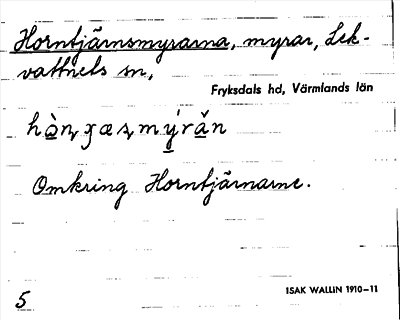 Horntjärnsmyrarna, myrar, Lek-
vattnets sn,
Fryksdals hd, Värmlands län
Omkring Horntjärnarne.
ISAK WALLIN 1910-11
5